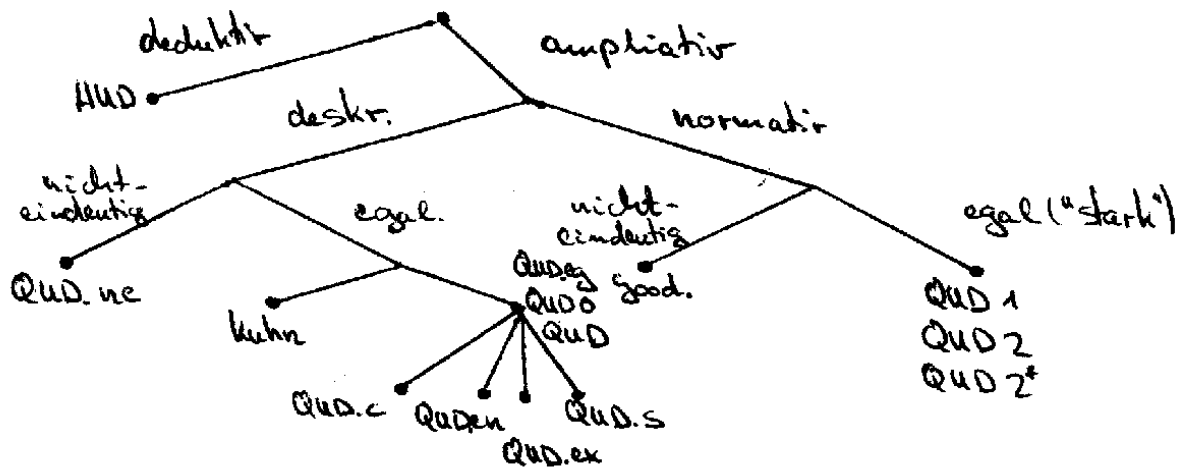 deduktiv
ampliativ
HUD
deskr.
normativ
nicht-
eindeutig
egal.
nicht-
eindeutig
egal ("stark")
QUD.ne
Kuhn
QUD.eg
QUD0
QUD
good.
QUD 1
QUD 2
QUD 2*
QUD.c
QUD.en
QUD.ex
QUD.s